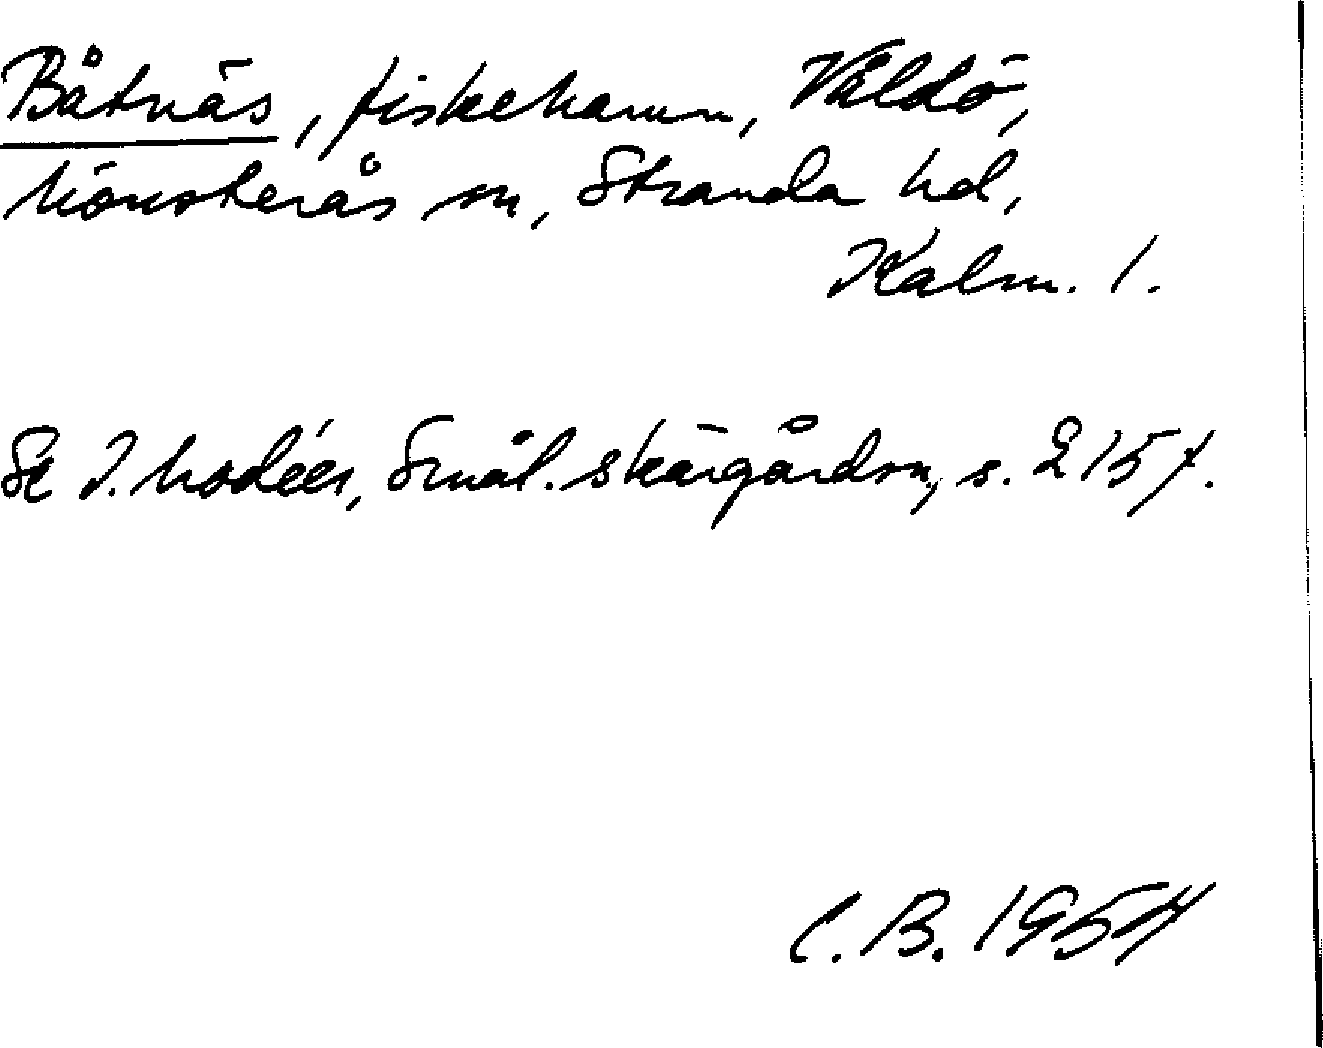 Båtnäs, fiskehamn, Våldö,
Mönsterås sn, Stranda hd,
Kalm. l.
Se I. Modéer, Smål. skärgårdsn, s. 215 f.
C. B. 1954